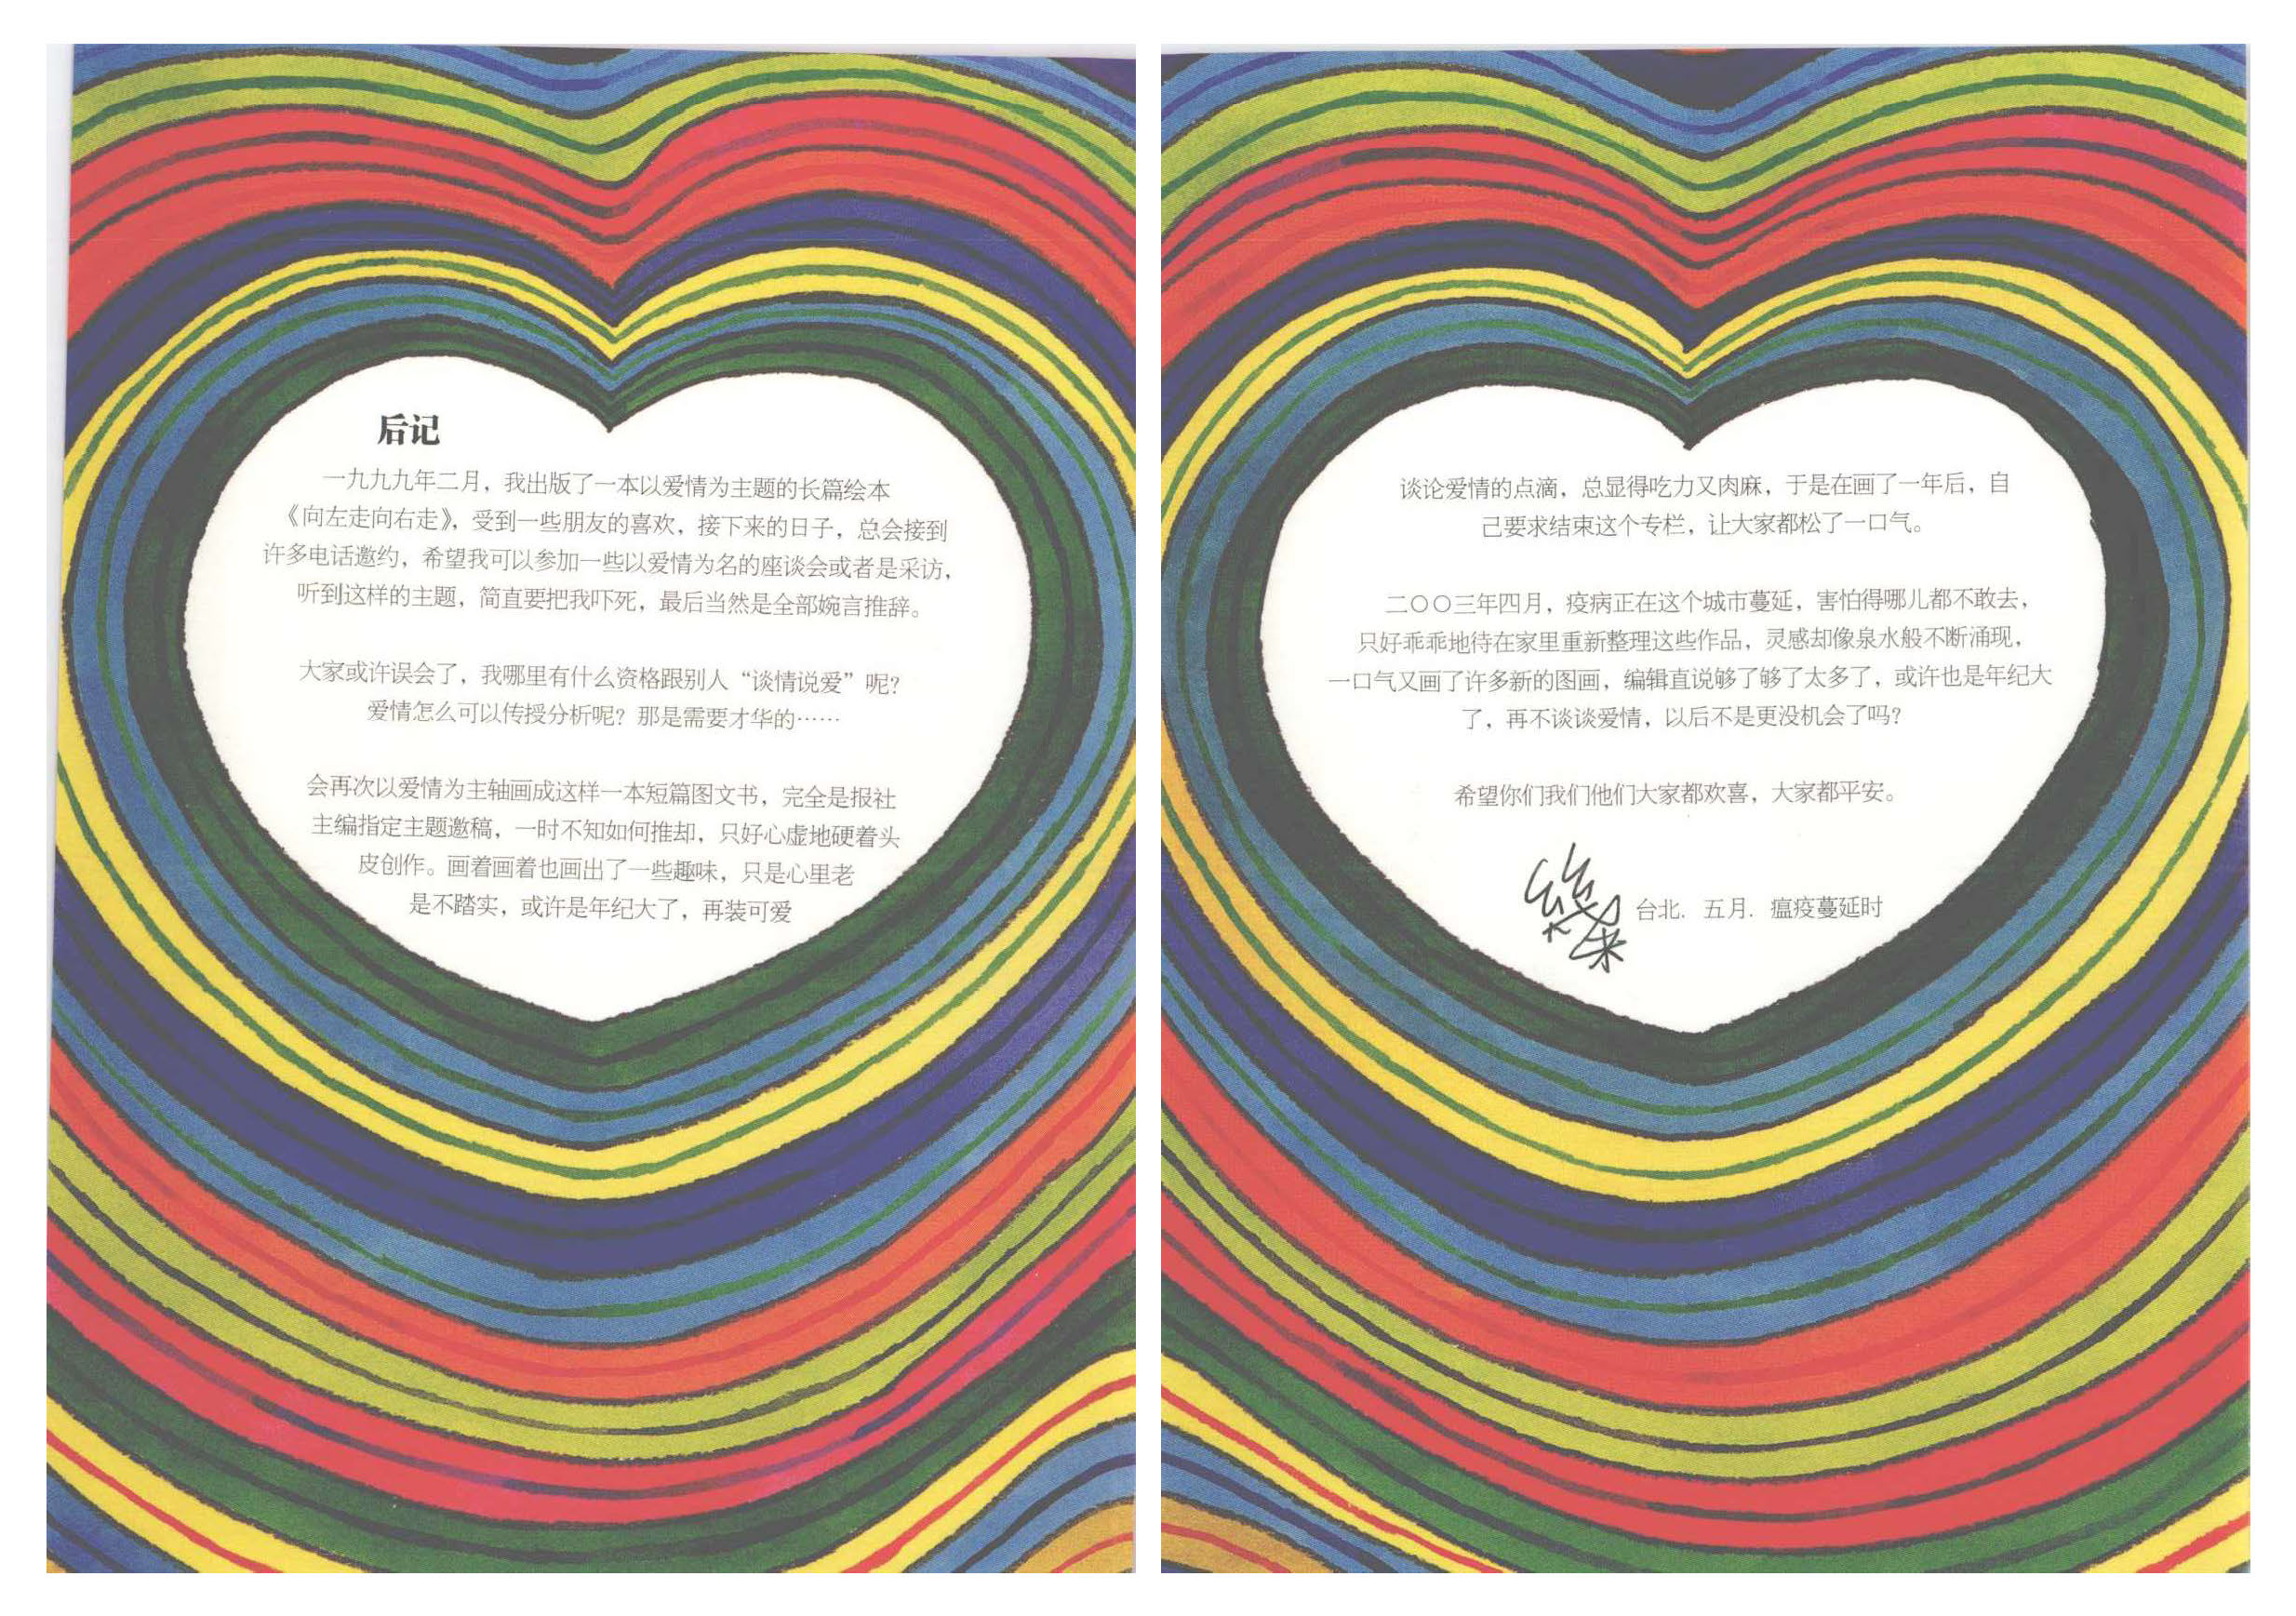 后记
一九九九年二月，我出版了一本以爱情为主题的长篇绘本
《向左走向右走》，受到一些朋友的喜欢，接下来的日子，总会接到
许多电话邀约，希望我可以参加一些以爱情为名的座谈会或者是采访，
听到这样的主题，简直要把我吓死，最后当然是全部婉言推辞。
大家或许误会了，我哪里有什么资格跟别人“谈情说爱”呢？
爱情怎么可以传授分析呢？那是需要才华的……
会再次以爱情为主轴画成这样一本短篇图文书，完全是报社
主编指定主题邀稿，一时不知如何推却，只好心虚地硬着头
皮创作。画着画着也画出了一些趣味，只是心里老
是不踏实，或许是年纪大了，再装可爱
谈论爱情的点滴，总显得吃力又肉麻，于是在画了一年后，自
己要求结束这个专栏，让大家都松了一口气。
二〇〇三年四月，疫病正在这个城市蔓延，害怕得哪儿都不敢去，
只好乖乖地待在家里重新整理这些作品，灵感却像泉水般不断涌现，
一口气又画了许多新的图画，编辑直说够了够了太多了，或许也是年纪大
了，再不谈谈爱情，以后不是更没机会了吗？
希望你们我们他们大家都欢喜，大家都平安。
台北．五月．瘟疫蔓延时